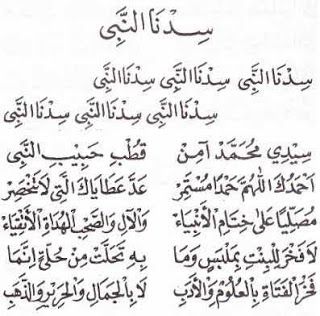 سِدْنَا النَّبِى
سِدْنَا النَّبِى سِدْنَا النَّبِى سِدْنَا النَّبِى
سِدْنَا النَّبِى سِدْنَا النَّبِى سِدْنَا النَّبِى
سِيْدِي مُحَمَّدْ آمِنْ قُطْبِ حَبِيْبِ النَّبِى
اَحْمَدُكَ اللهُمَّ حَمْدًا مُسْتَمِرْ عَدَّ عَطَايَاكَ الَّتِى لَا تَنْحَصِرْ
مُصَلِّيًا عَلَى خِتَامِ الْأَنْبِيَاءْ وَالْآلِ وَالصَّحْبِ الْهُدَاةِ الْأَتْقِيَاءْ
لَا فَخْرَ لِلْبِنْتِ بِمَلْبَسٍ وَمَا بِهِ تَحَلَّتْ مِنْ حُلِيٍّ اِنَّمَا
فَخْرُ الْفَتَاةِ بِالْعُلُوْمِ وَالْأَدَبِ لَا بِالْجَمَالِ وَالْحَرِيْرِ وَالذَّهَبِ